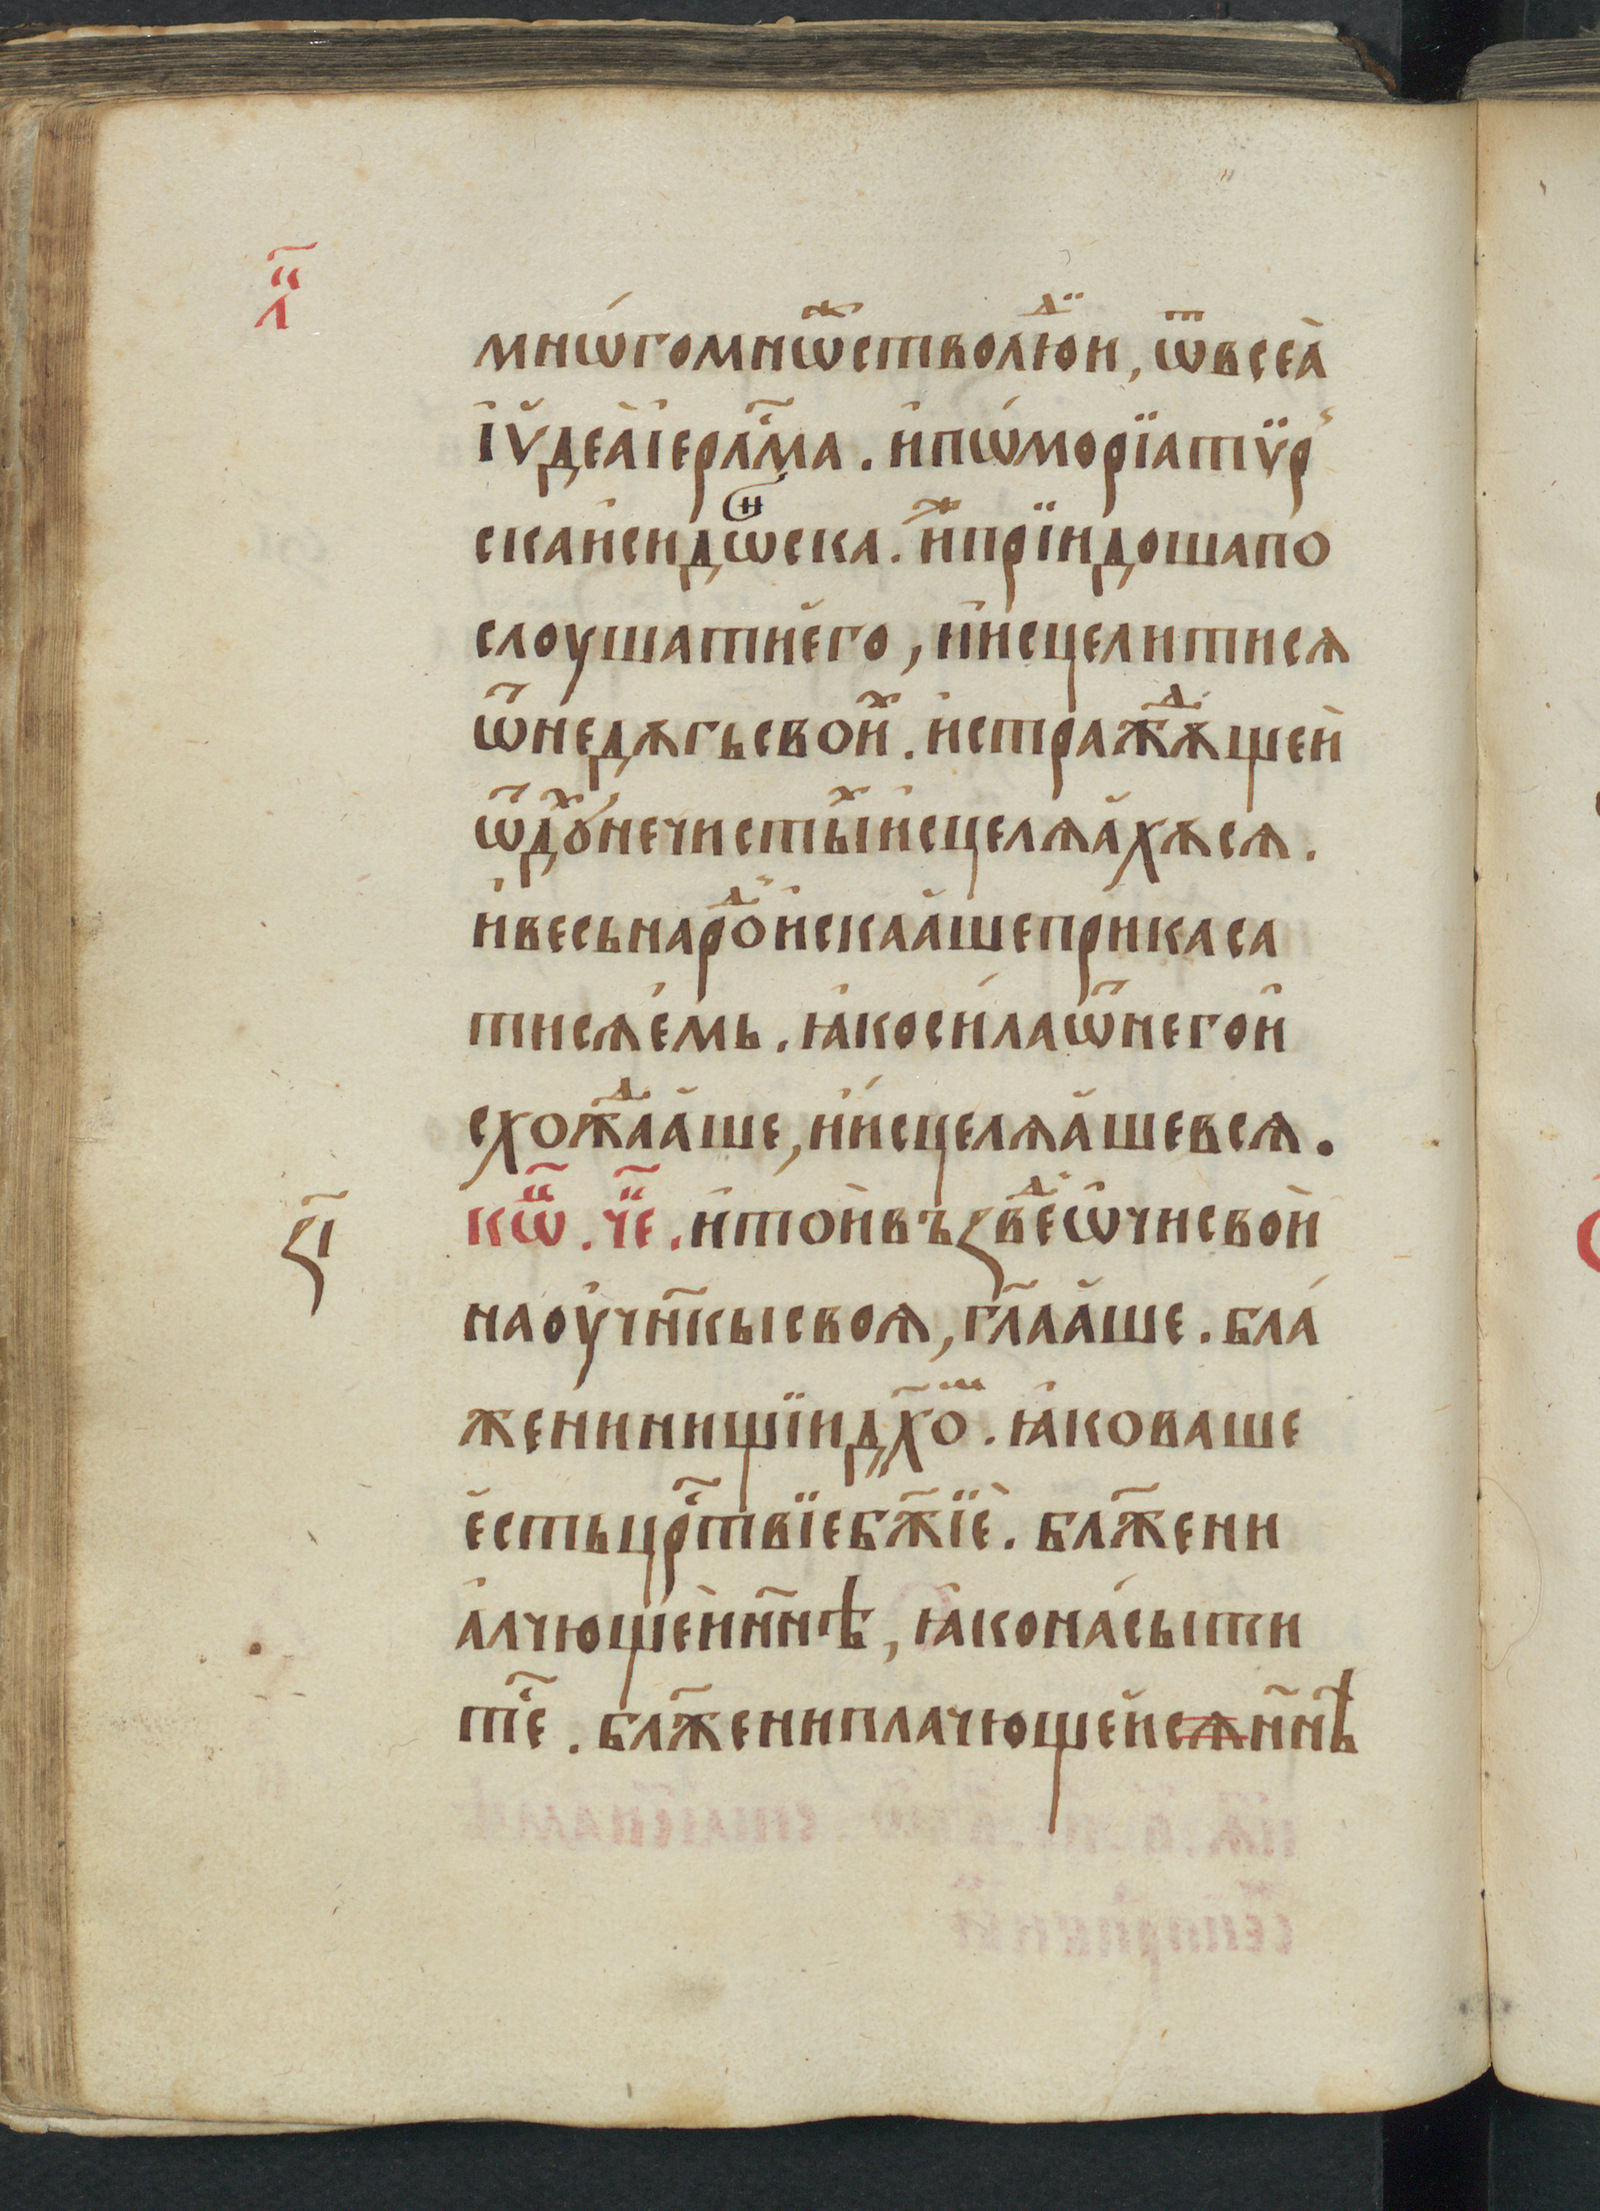 л҃
мнѡ́гомнѡⷤ҇стволю́ⷣи, ѿвсеа̀
і҆ꙋ̆деа̀і҆ерⷭ҇лма. и҆пѡ́морїатѵ̈р
скаи҆сидѡⷩ҇ска. и҆ⷤпрїидошапо
слоушатиє҆го, и҆и҆сцелитисѧ
ѿнедѧгьсвоиⷯ. и҆стражⷣѧщеи҆
ѿдꙋⷯ́нечистыⷯи҆сцелѧӑхѫсѧ.
и҆весьнароⷣи҆скаӑшеприкаса
тисѧє҆мь. ꙗ҆коси́лаѿнегои҆
схожⷣаӑше, и҆и҆сцелѧӑшевсѧ.
ѕ҃і
кѡⷰ҇. чⷭ҇е. и҆тои҆въꙁвеⷣѡ҆чисвои҆
наоу҆чн҃кысвоѧ, гл҃аӑше. бла́
женинищїидх҃оⷨ. ꙗ҆коваше
є҆стьцрⷭ҇твїебж҃їе. бл҃жени
а҆лчющеи҆нн҃ѣ, ꙗ҆кона́сыти
тⷭ҇е. бл҃женипла́чющеи҆сѧнн҃ѣ